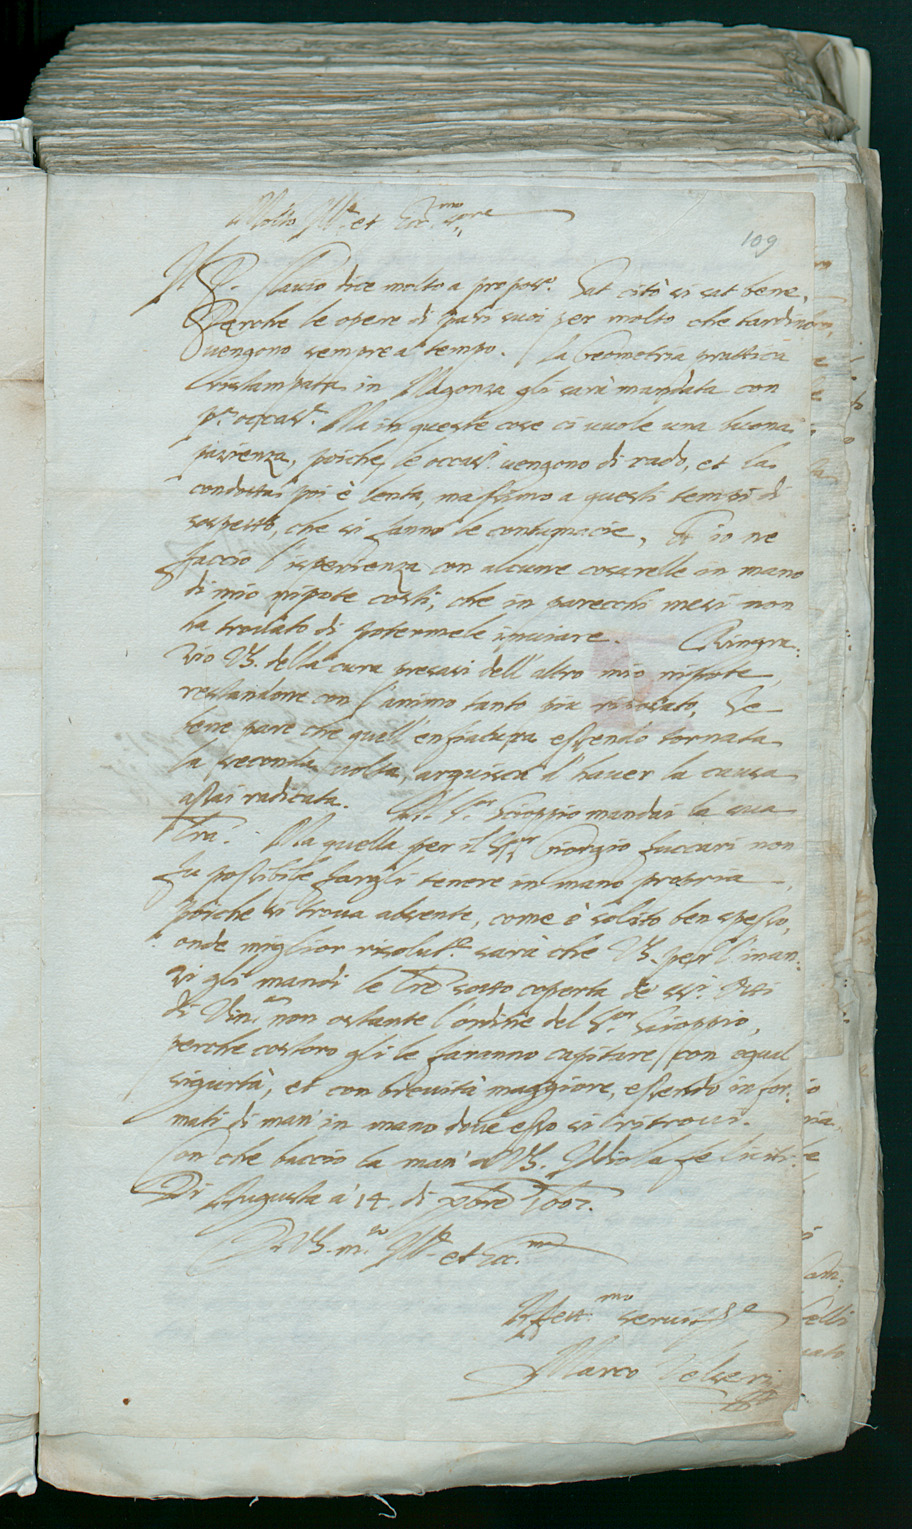 Molto Ill.e et Ecc.mo S.ore
109
Il P. Clavio dice molto a propos.o Sat citò si sat bene,
Perche le opere di pari suoi per molto che tardino
vengono sempre a tempo. La Geometria prattica
ristampata in Magonza gli sarà mandata con
p.a occas.e Ma in queste cose ci vuole una buona
patienza, poiche le occas.i vengono di rado, et la
condotta poi è lenta, massimo a questi tempi di
sospetto, che si fanno le contumacie, Et io ne
faccio l'isperienza con alcune cosarelle in mano
di mio nipote costì, che in parecchi mesi non
ha trovato di potermele inviare. Ringra:
tio VS. della cura presasi dell'altro mio nipote,
restandone con l'animo tanto più riposato, Se
bene pare che quell'enfiatura essendo tornata
la seconda volta, arguisca d'haver la causa
assai radicata. Al S.or Scioppio mandai la sua
Lra. Ma quella per il S.or Giorgio Fuccari non
fu possibile fargli tenere in mano propria,
poiche si trova absente, come è solito ben spesso,
onde miglior risolut.e sarà che VS. per l'inan:
zi gli mandi le Lre sotto coperta de ss.ri
di Ven.a non ostante l'ordine del S.or Scioppio,
perche costoro gli le faranno capitare con egual
sigurtà, et con brevità maggiore, essendo infor:
mati di man' in mano dove esso si ritrovi.
Con che baccio la man' a VS. Iddio la feliciti.
Di Augusta à 14. di 1607.
Di VS. m.to Ill.e et Ecc.ma
Affett.mo servit.re
Marco Velseri